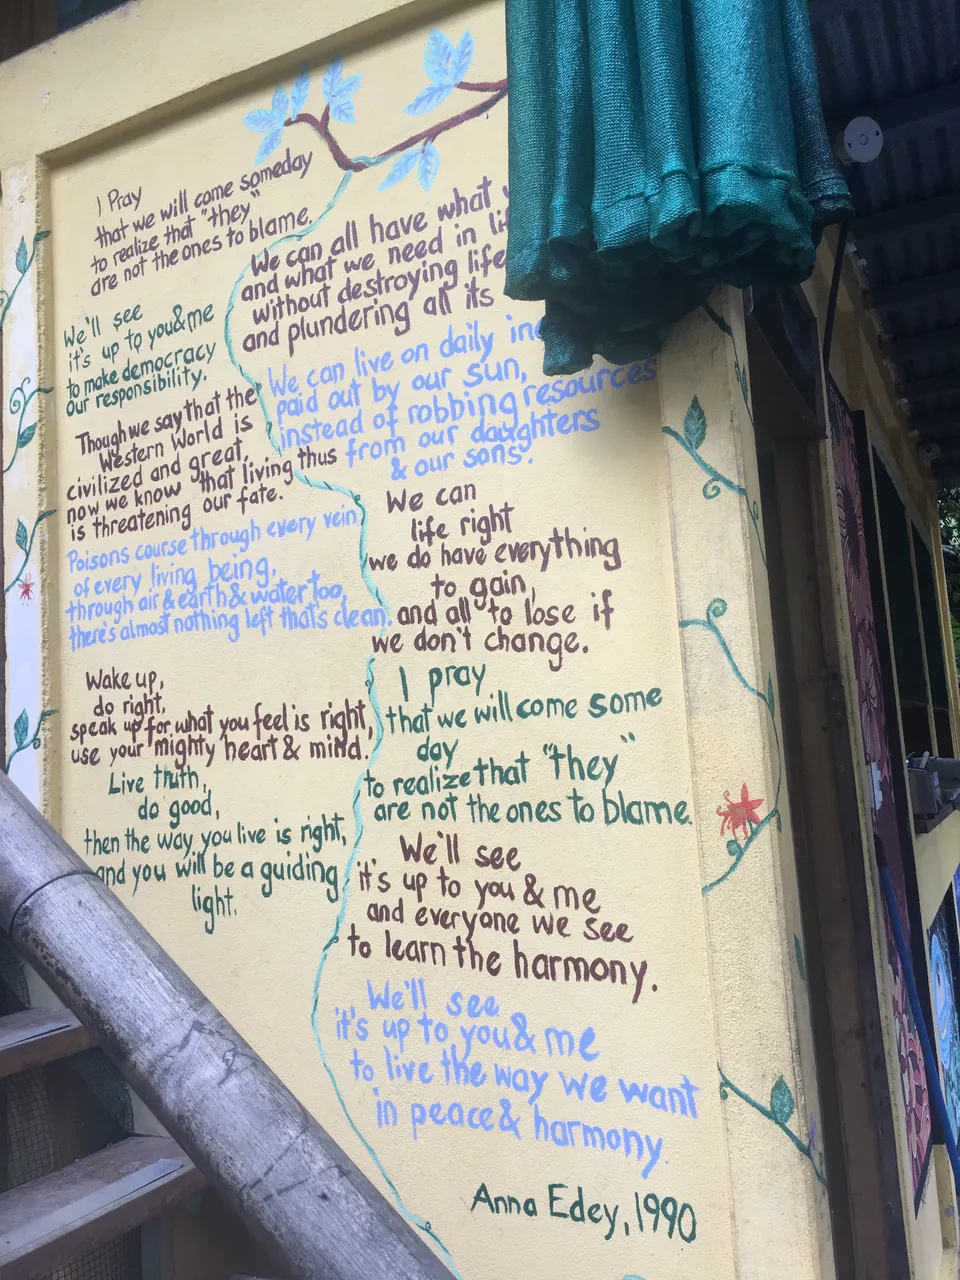 I Pray
that we will come someday
to realize that "they"
are not the ones to blame.
We'll see
it's up to you & me
to make democracy
our responsibility.
Though we say that the
Western World is
civilized and great,
now we know that living thus
is threatening our fate.
Poisons course through every vein
of every living being,
through air & earth & water too,
there's almost nothing left that's clean.
Wake up,
do right,
speak up for what you feel is right,
use your mighty heart & mind.
Live truth,
do good,
then the way you live is right,
and you will be a guiding
light.
We can all have what
and what we need in
without destroying life
and plundering all its
We can live on daily
paid out by our sun,
instead of robbing resources
from our daughters
& our sons.
We can
life right
we do have everything
to gain,
and all to lose if
we don't change.
I pray
that we will come some
day
to realize that "they"
are not the ones to blame.
We'll see
it's up to you & me
and everyone we see
to learn the harmony.
We'll see
it's up to you & me
to live the way we want
in peace & harmony.
Anna Edey, 1990